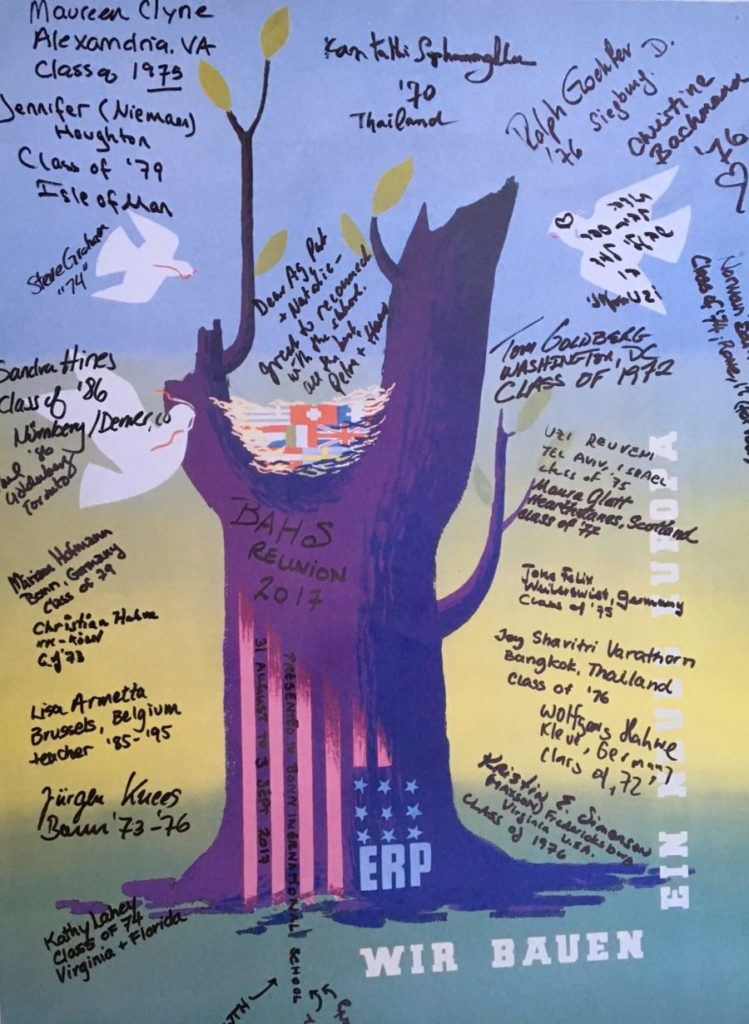 Maureen Clyne
Alexandria, VA
Class of 1975
Jennifer (Nieman)
Houghton
Class of '79
Isle of Man
Steve Graham
"74"
'70
Thailand
Ralph D.
'76 Siegburg.
Christine
Bachmann
'76
Dear Ag, Pat
+ Natalie -
great to reconnect
with the school.
all the best,
UZI
Class of '74, Rome,
Tom GOLDBERG
WASHINGTON, DC
CLASS OF 1972
Sandra Hines
Class of '86
Nürnberg/Denver, CO
'86
Goldenberg
Toronto
UZI REUVENI
TEL AVIV, ISRAEL
class of '75
Maura Glatt
Scotland
class of '77
BAHS
REUNION
2017
Miriam Hofmann
Bonn, Germany
class of 79
Christian Hahne
'73
Germany
Class of '75
Joy Shavitri Varathorn
Bangkok, Thailand
class of '76
Wolfgang Hahne
Kleve, Germany
Class of, 72,
Lisa Armetta
Brussels, Belgium
teacher '85-'95
Jürgen Knees
Bonn '73-'76
Kristin E Simonson
(Maxson) Fredericksburg
Virginia U.S.A.
CLASS of 1976
Kathy Lahey
Class of 74
Virginia + Florida
PRESENTED TO BONN INERNATIONAL SCHOOL
31 AUGUST TO 3 SEPT 2017
ERP
WIR BAUEN
EIN NEUES EUROPA